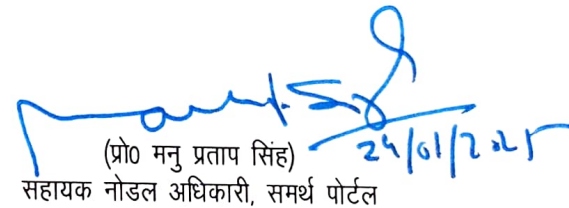 24/01/2025
(प्रो0 मनु प्रताप सिंह)
सहायक नोडल अधिकारी, समर्थ पोर्टल